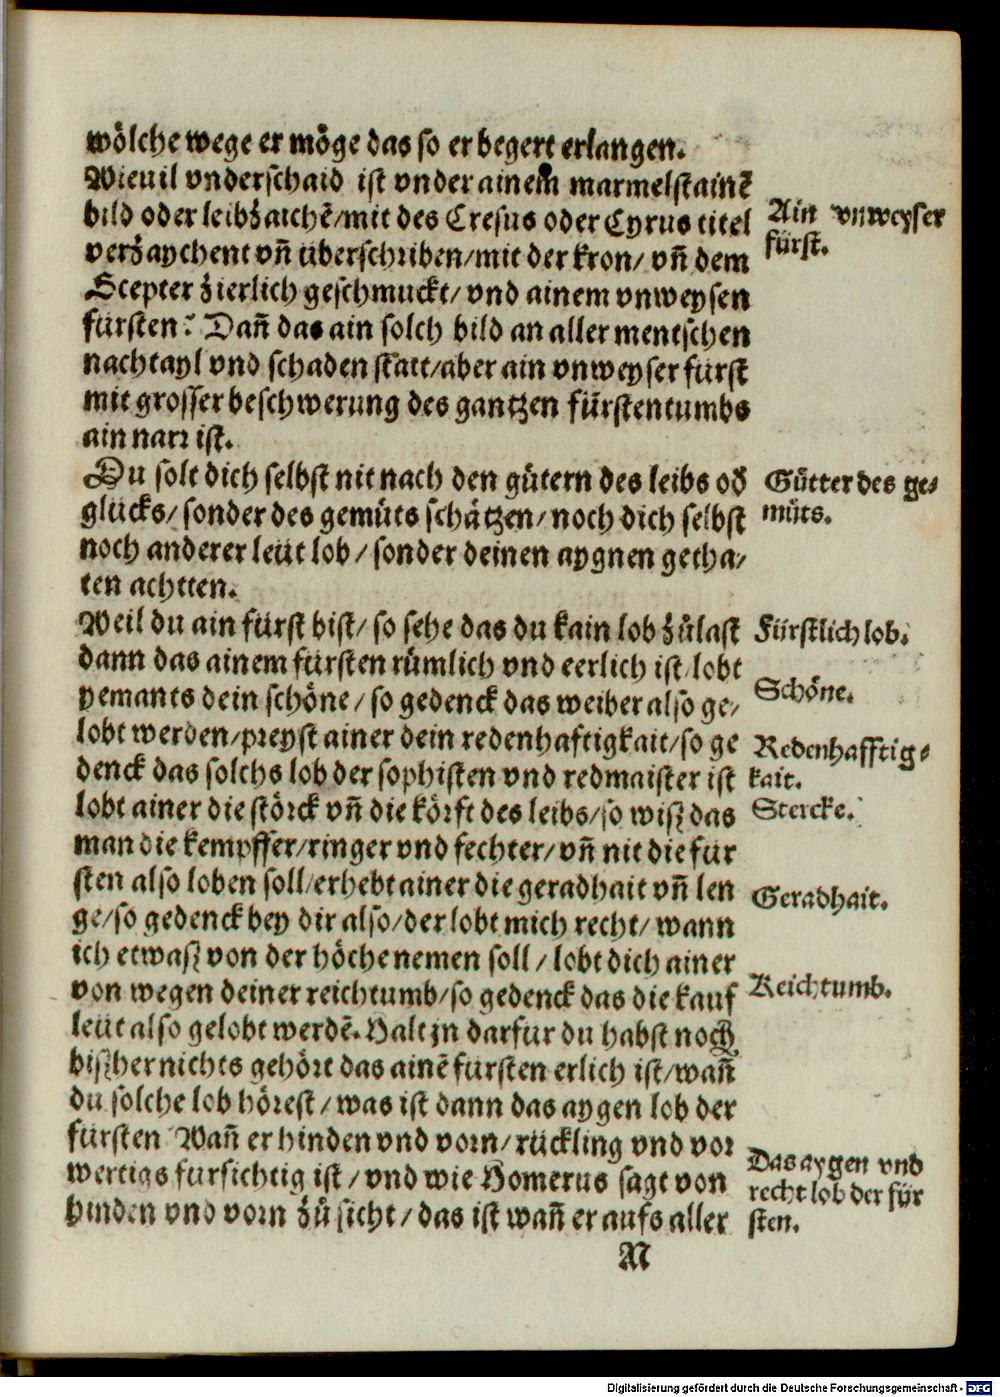 wölche wege er möge das so er begert erlangen.
Wieuil vnderschaid ist vnder ainem marmelstainẽ
bild oder leibzaichẽ/mit des Cresus oder Cyrus titel
verzaychent vñ überschriben/mit der kron/ vñ dem
Scepter zierlich geschmuckt/ vnd ainem vnweysen
fürsten? Dañ das ain solch bild an aller mentschen
nachtayl vnd schaden statt/aber ain vnweyser fürst
mit grosser beschwerung des gantzen fürstentumbs
ain narr ist.
Ain vnweyser
fürst.
Du solt dich selbst nit nach den gütern des leibs od̃
glücks/ sonder des gemüts schätzen/ noch dich selbst
noch anderer leüt lob/ sonder deinen aygnen getha/
ten achtten.
Gütter des ge/
müts.
Weil du ain fürst bist/ so sehe das du kain lob zůlast
dann das ainem fürsten rümlich vnd eerlich ist/lobt
yemants dein schöne/ so gedenck das weiber also ge/
lobt werden/preyst ainer dein redenhaftigkait/so ge
denck das solchs lob der sophisten vnd redmaister ist
lobt ainer die störck vñ die körft des leibs/so wisz das
man die kempffer/ringer vnd fechter/vñ nit die für
sten also loben soll/erhebt ainer die geradhait vñ len
ge/so gedenck bey dir also/der lobt mich recht/ wann
ich etwasz von der höche nemen soll/ lobt dich ainer
von wegen deiner reichtumb/so gedenck das die kauf
leüt also gelobt werdẽ. Halt in darfur du habst noch
biszher nichts gehört das ainẽ fürsten erlich ist/wañ
du solche lob hörest/ was ist dann das aygen lob der
fürsten Wañ er hinden vnd vorn/ rückling vnd vor
wertigs fursichtig ist/ vnd wie Homerus sagt von
hinden vnd vorn zů sicht/ das ist wañ er aufs aller
Fürstlich lob.
Schöne.
Redenhafftig/
kait.
Stercke.
Geradhait.
Reichtumb.
Das aygen vnd
recht lob der für
sten.
N
Digitalisierung gefördert durch die Deutsche Forschungsgemeinschaft - DFG